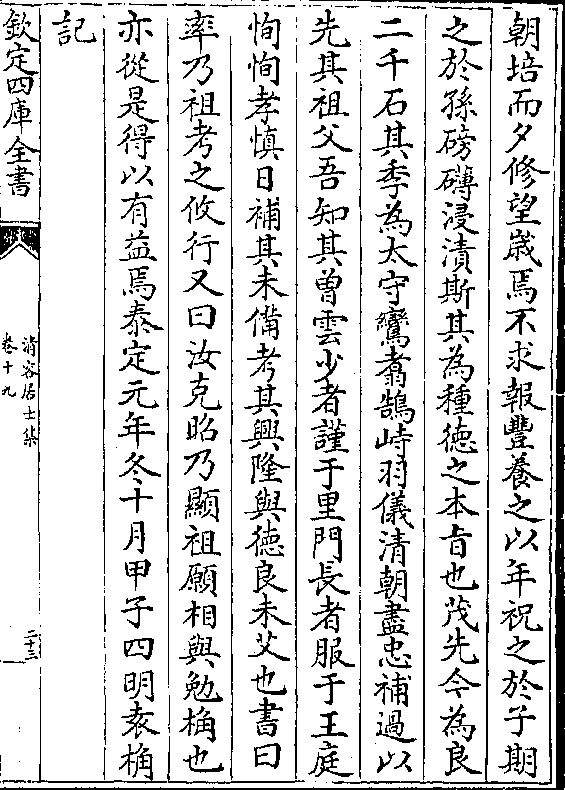 朝培而夕修望嵗焉不求報豐養之以年祝之於子期
之於孫磅礴浸漬斯其為種徳之本㫖也茂先今為良
二千石其季為太守鸞翥鵠峙羽儀清朝盡忠補過以
先其祖父吾知其曽雲少者謹于里門長者服于王庭
恂恂孝慎日補其未備考其興隆與徳良未艾也書曰
率乃祖考之攸行又曰汝克昭乃顯祖願相與勉桷也
亦從是得以有益焉泰定元年冬十月甲子四明袁桷
記
欽定四庫全書
清容居士集
卷十九
二十三